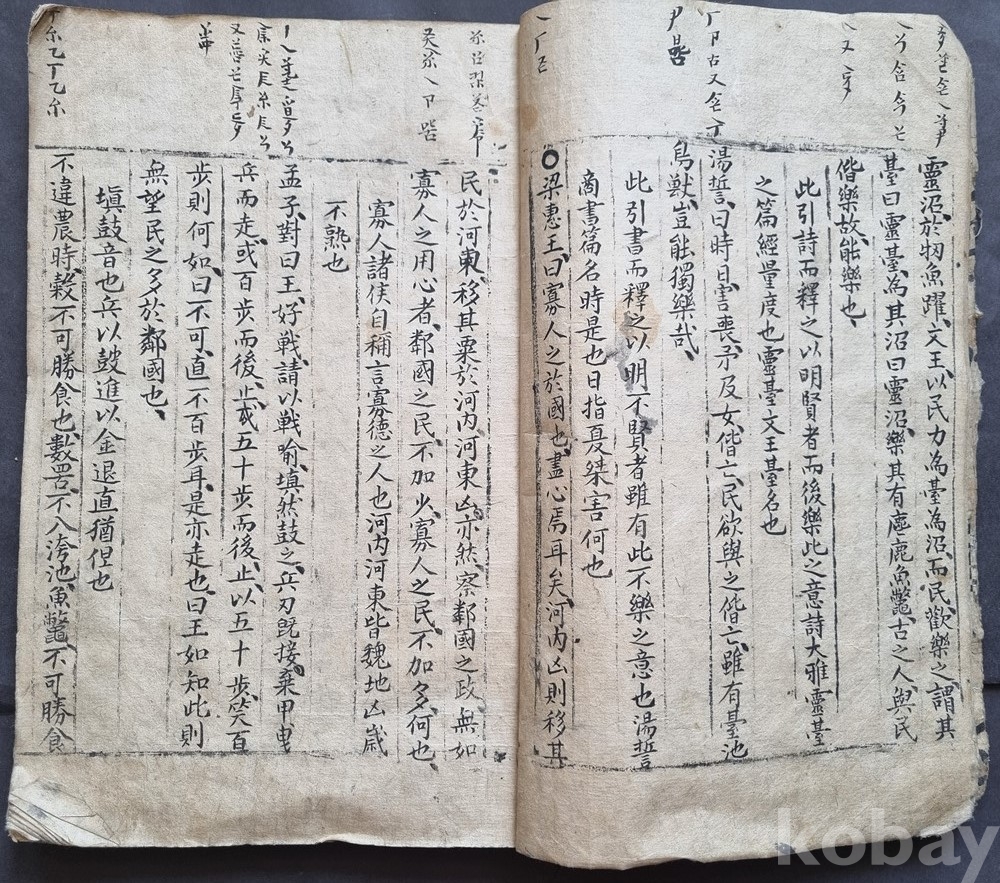 靈沼於牣魚躍文王以民力為臺為沼而民歡樂之謂其
臺曰靈臺為其沼曰靈沼樂其有麀鹿魚鼈古之人與民
偕樂故能樂也
此引詩而釋之以明賢者而後樂此之意詩大雅靈臺
之篇經量度也靈臺文王臺名也
湯誓曰時日害喪予及女偕亡民欲與之偕亡雖有臺池
鳥獸豈能獨樂哉
此引書而釋之以明不賢者雖有此不樂之意也湯誓
商書篇名時是也日指夏桀害何也
梁惠王曰寡人之於國也盡心焉耳矣河內凶則移其
民於河東移其粟於河內河東凶亦然察鄰國之政無如
寡人之用心者鄰國之民不加少寡人之民不加多何也
寡人諸侯自稱言寡德之人也河內河東皆魏地凶歲
不熟也
孟子對曰王好戰請以戰喻填然鼓之兵刃既接棄甲曳
兵而走或百步而後止或五十步而後止以五十步笑百
步則何如曰不可直不百步耳是亦走也曰王如知此則
無望民之多於鄰國也
塡鼓音也兵以鼓進以金退直猶但也
不違農時穀不可勝食也數罟不入洿池魚鼈不可勝食
kobay